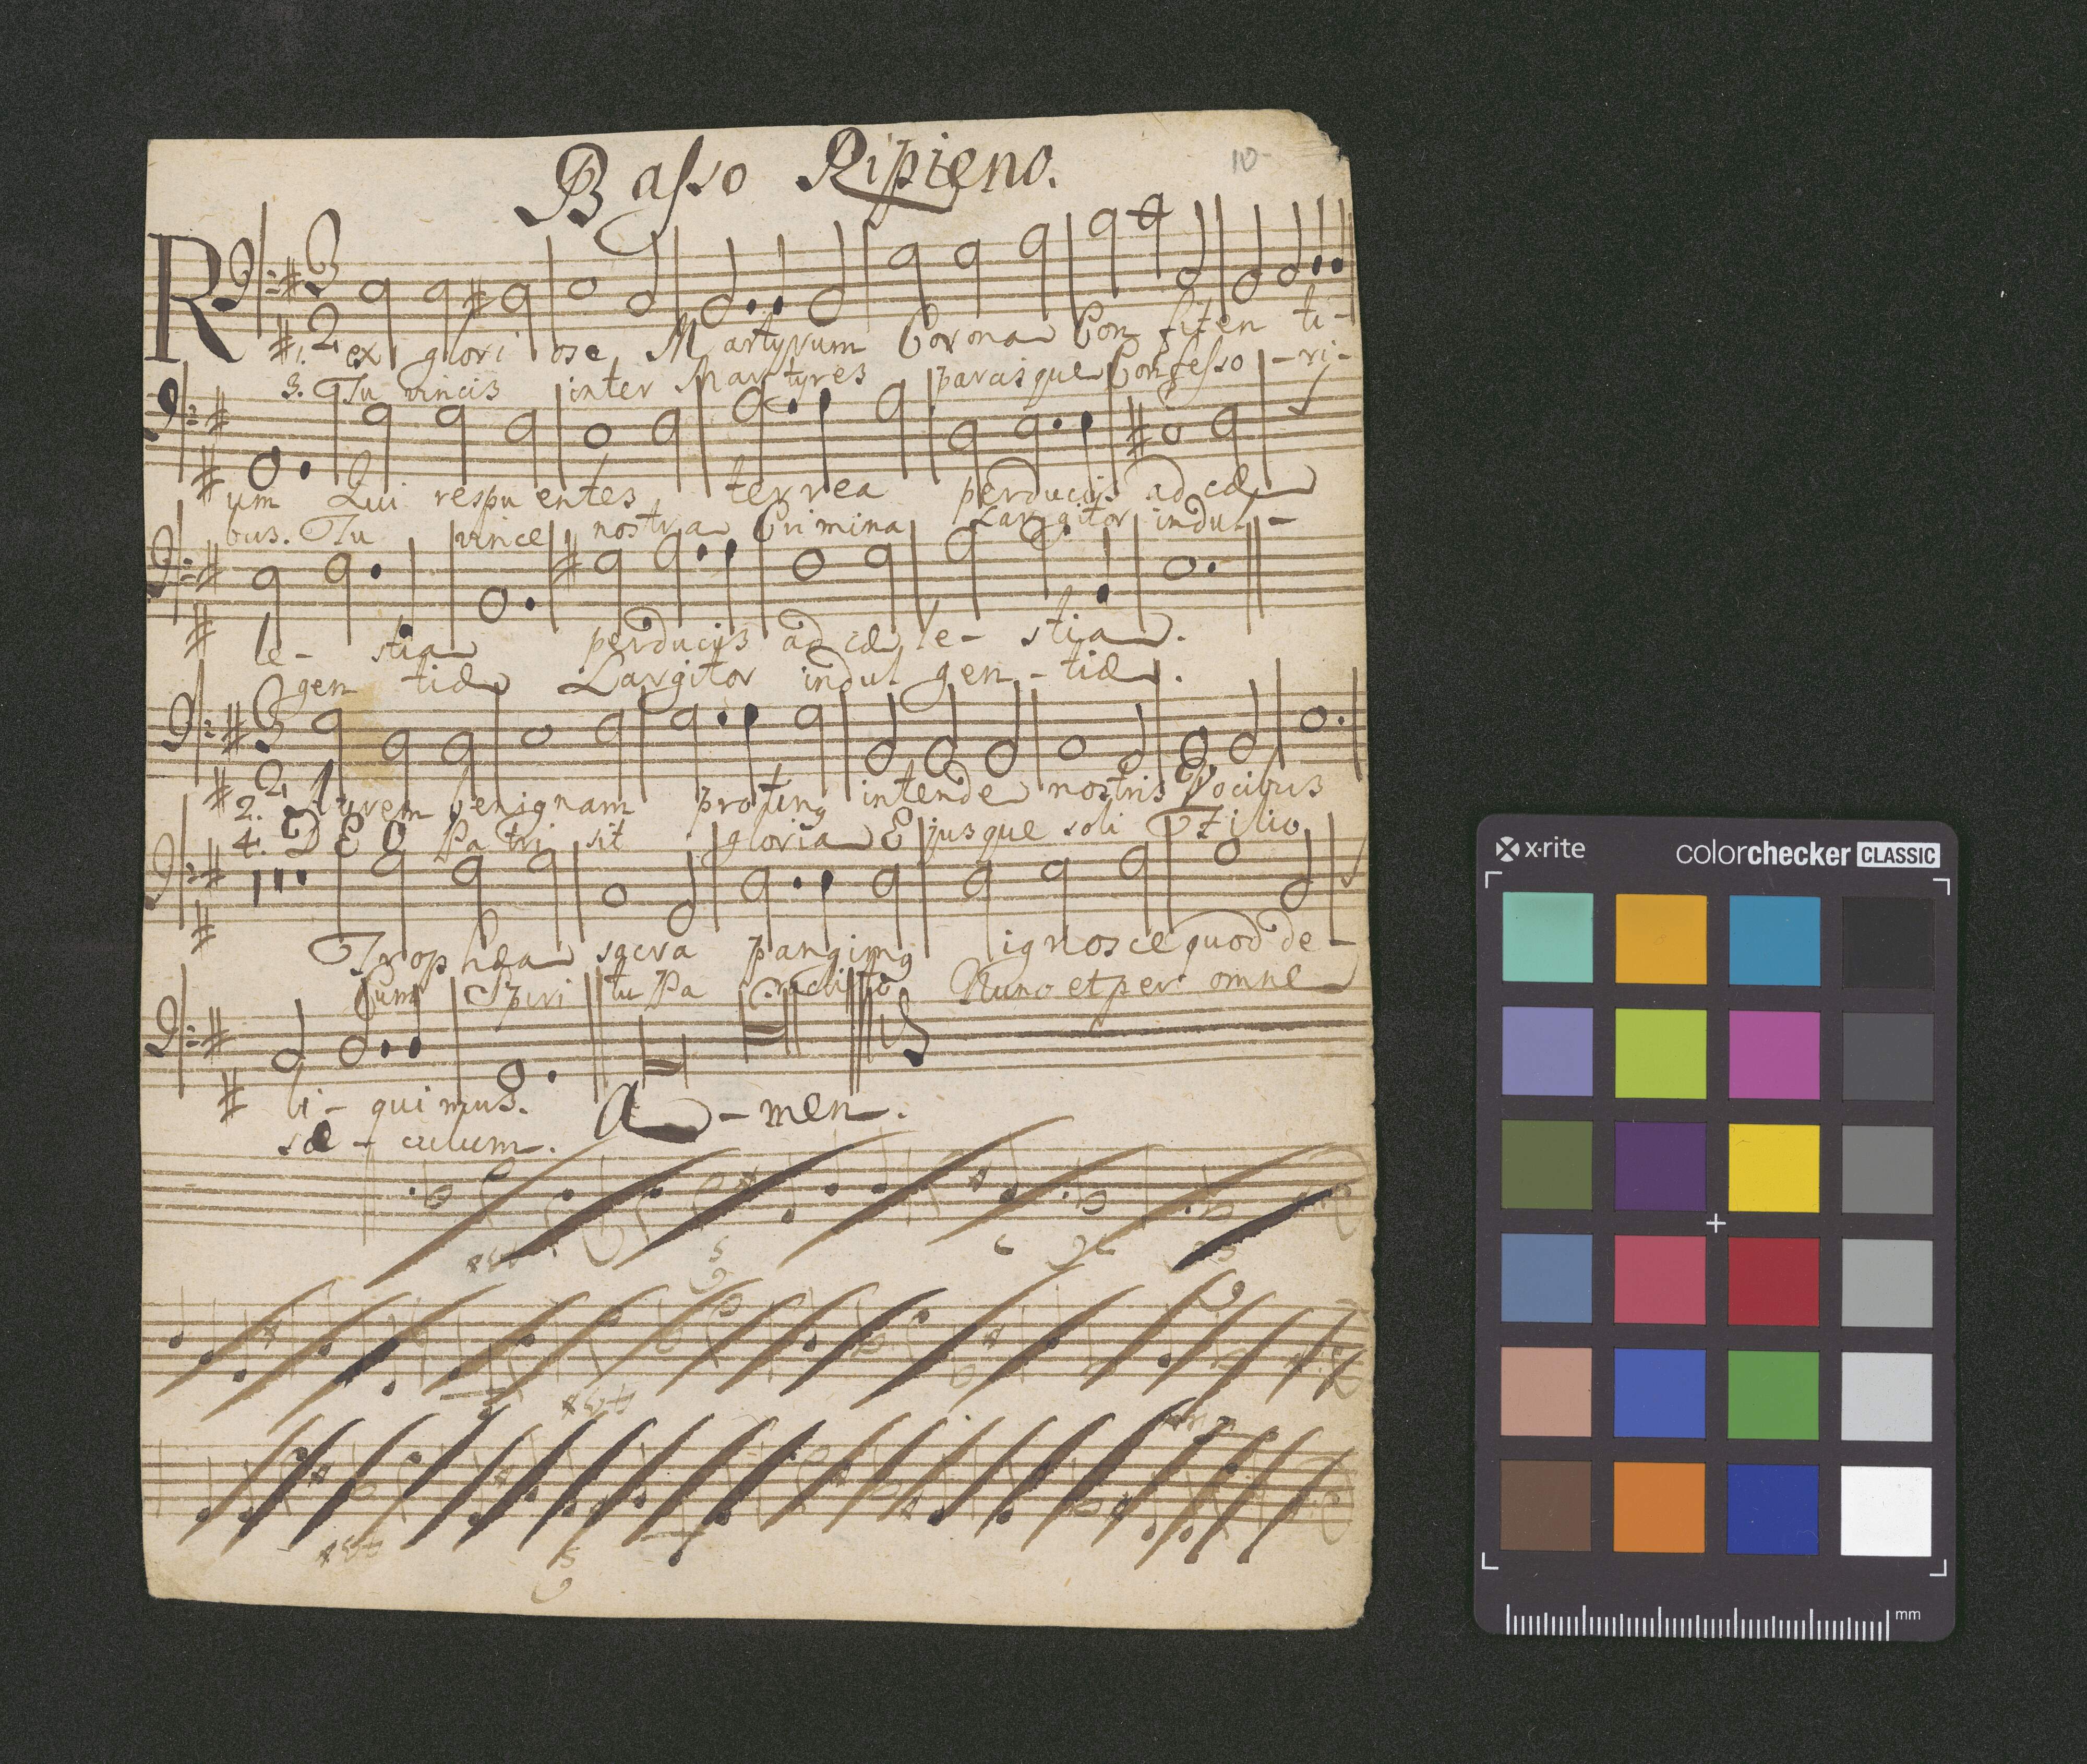 Basso Ripieno.
10
1. Rex glori ose Martyrum Corona Con fiten ti-
3. Tu vincis inter Martyres parcisque Confesso -ri-
um Qui respu entes terrea perducis ad cæ
bus. Tu vince nostra Crimina Largitor indul-
le- stia perducis ad cæ le- stia.
gen tiæ Largitor indul gen- tiæ.
2. Aurem benignam protinq intende nostris Vocibus
4. DEO Patri sit gloria Ejusque soli Filio
Trophæa sacra pangimq ignosce quod de-
Cum Spiri tu Pa raclito Nunc et per omne
li- quimus. A-men.
sæ- culum.
x-rite colorchecker CLASSIC
mm